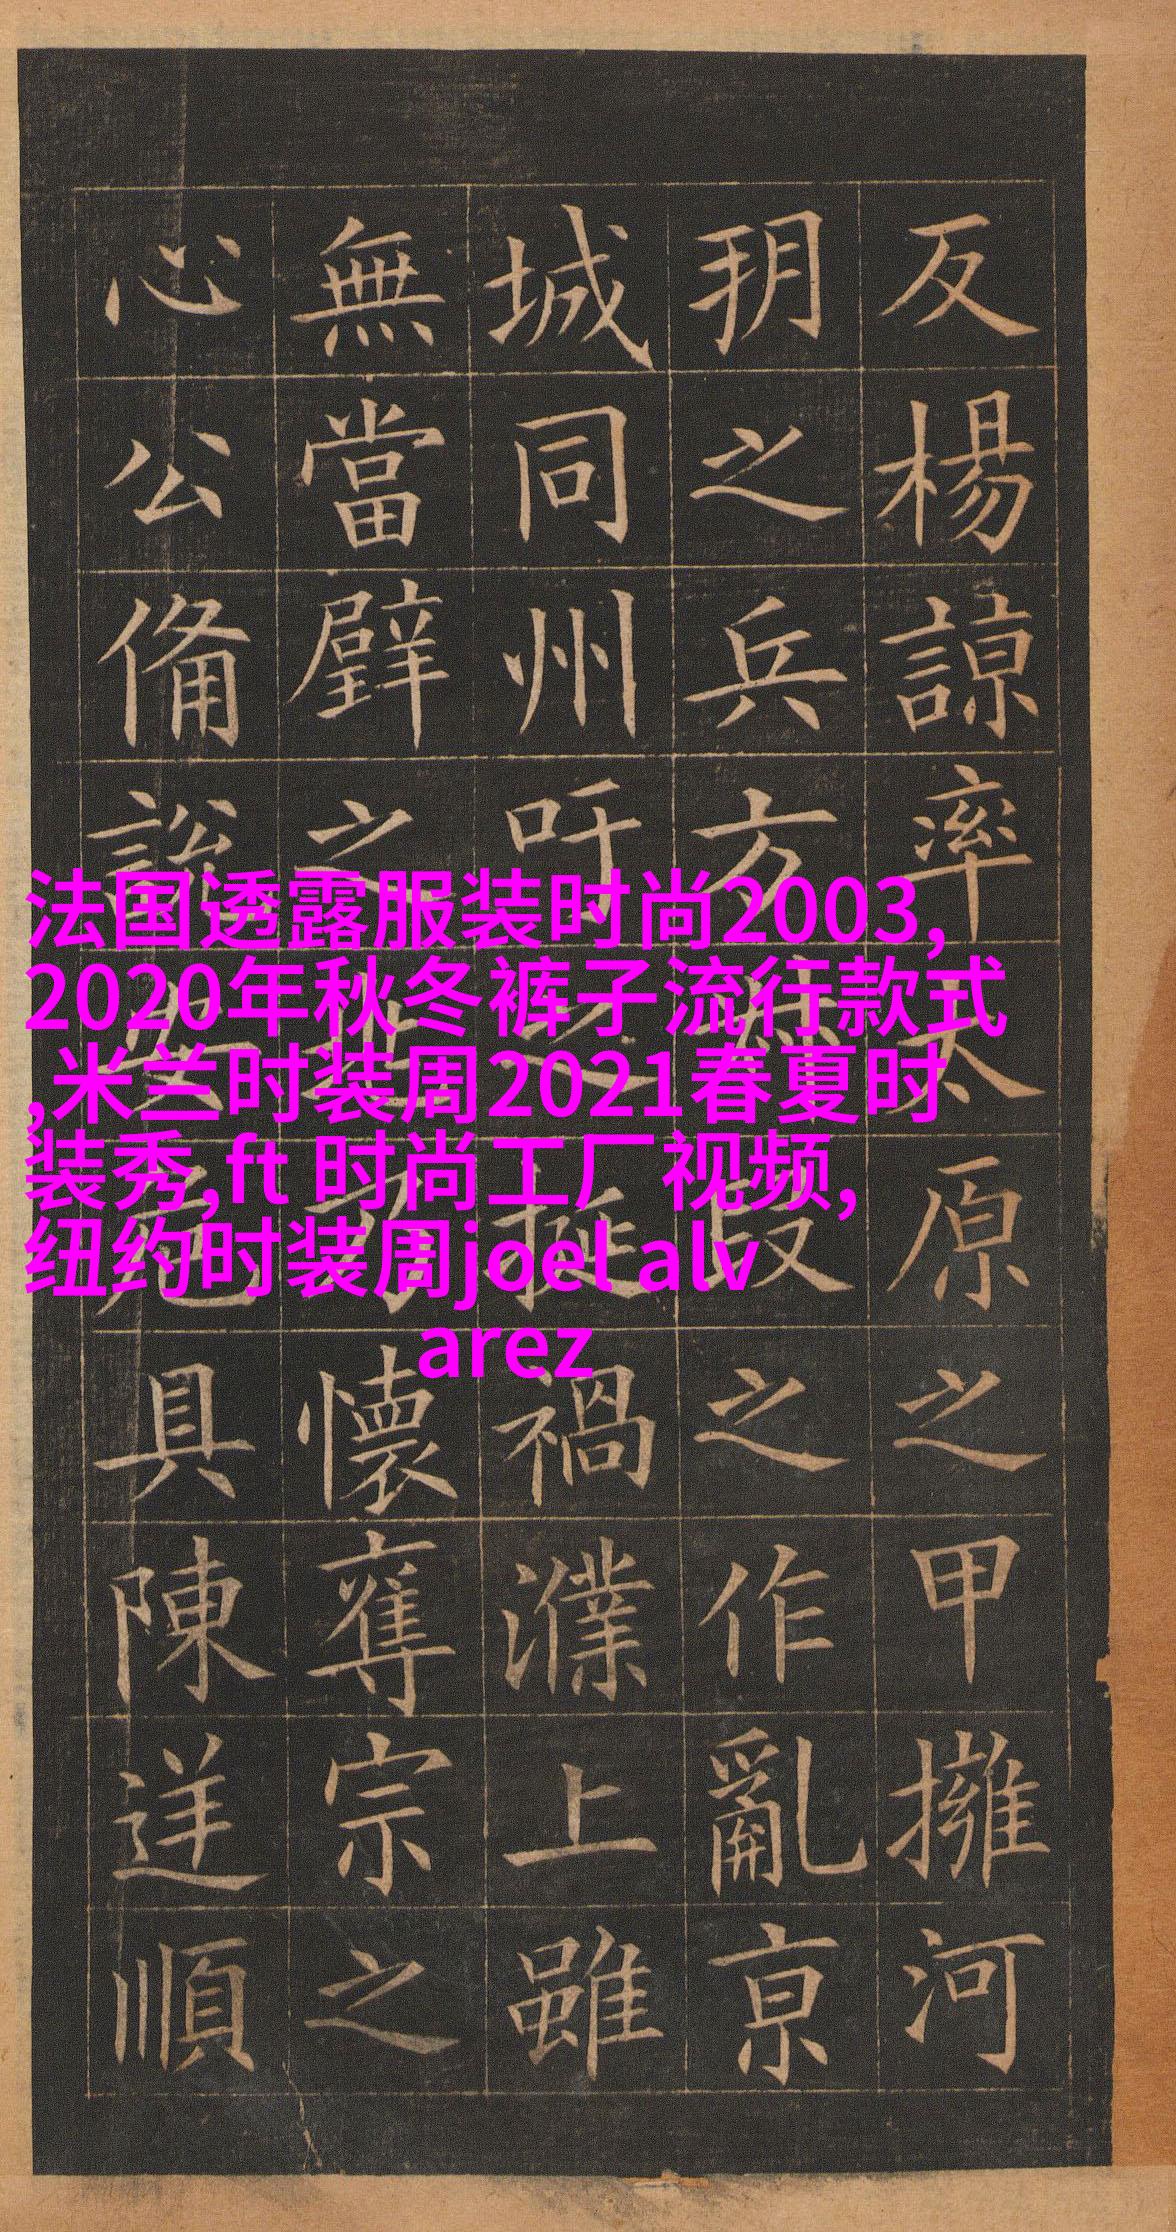 反楊諒率太原之甲擁河
朔之兵方叔段之作亂京
城同州吁之挻禍濮上雖
無當璧之兆乃懷奪宗之
心公備說安危具陳逆順
法国透露服装时尚2003,
2020年秋冬裤子流行款式
,米兰时装周2021春夏时
装秀,ft 时尚工厂视频,
纽约时装周joel alv
arez